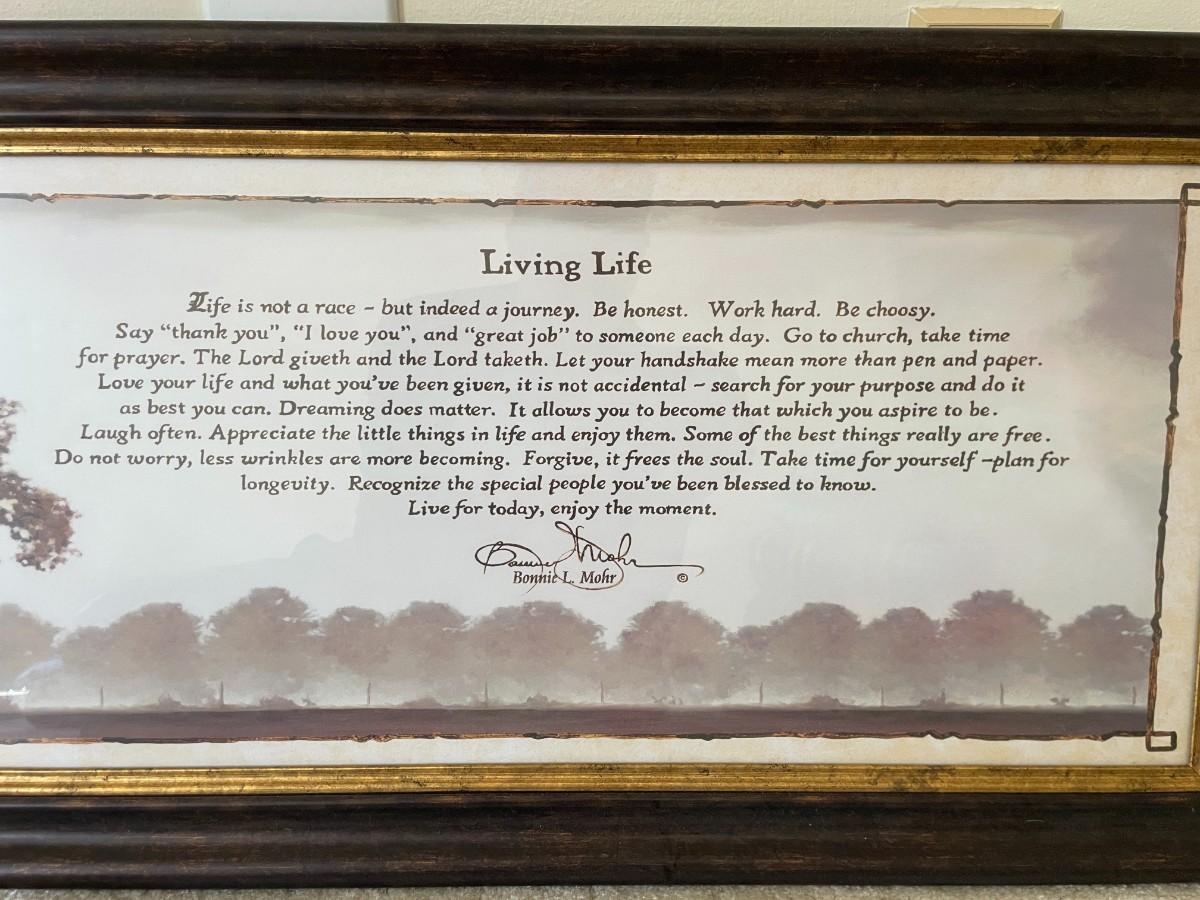 Living Life
Life is not a race ~ but indeed a journey. Be honest. Work hard. Be choosy.
Say “thank you”, “I love you”, and “great job” to someone each day. Go to church, take time
for prayer. The Lord giveth and the Lord taketh. Let your handshake mean more than pen and paper.
Love your life and what you've been given, it is not accidental ~ search for your purpose and do it
as best you can. Dreaming does matter. It allows you to become that which you aspire to be.
Laugh often. Appreciate the little things in life and enjoy them. Some of the best things really are free.
Do not worry, less wrinkles are more becoming. Forgive, it frees the soul. Take time for yourself ~plan for
longevity. Recognize the special people you've been blessed to know.
Live for today, enjoy the moment.
Bonnie L. Mohr
Bonnie L. Mohr ©